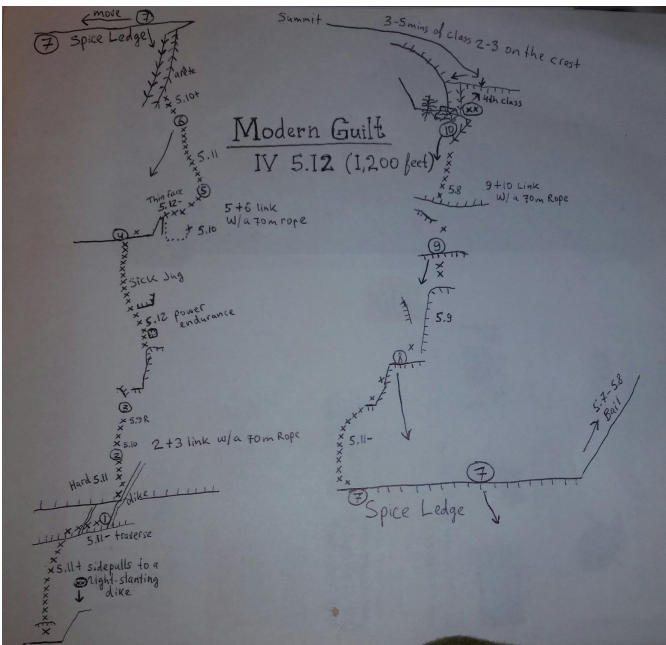 move
7
7
Spice Ledge
arête
5.10+
6
5.11
5
Thin face
5.12-
5.10
5+6 link
w/a 70m rope
4
Sick Jug
5.12 power
endurance
3
5.9R
5.10
2
2+3 link w/a 70m Rope
Hard 5.11
dike
1
5.11- traverse
5.11+ sidepulls to a
right-slanting
dike
Modern Guilt
IV 5.12 (1,200 feet)
Summit
3-5mins of class 2-3 on the crest
4th class
xx
10
5.8
9+10 Link
w/a 70m Rope
9
5.9
8
5.11-
7
7
Spice Ledge
5.7-5.8
Bail